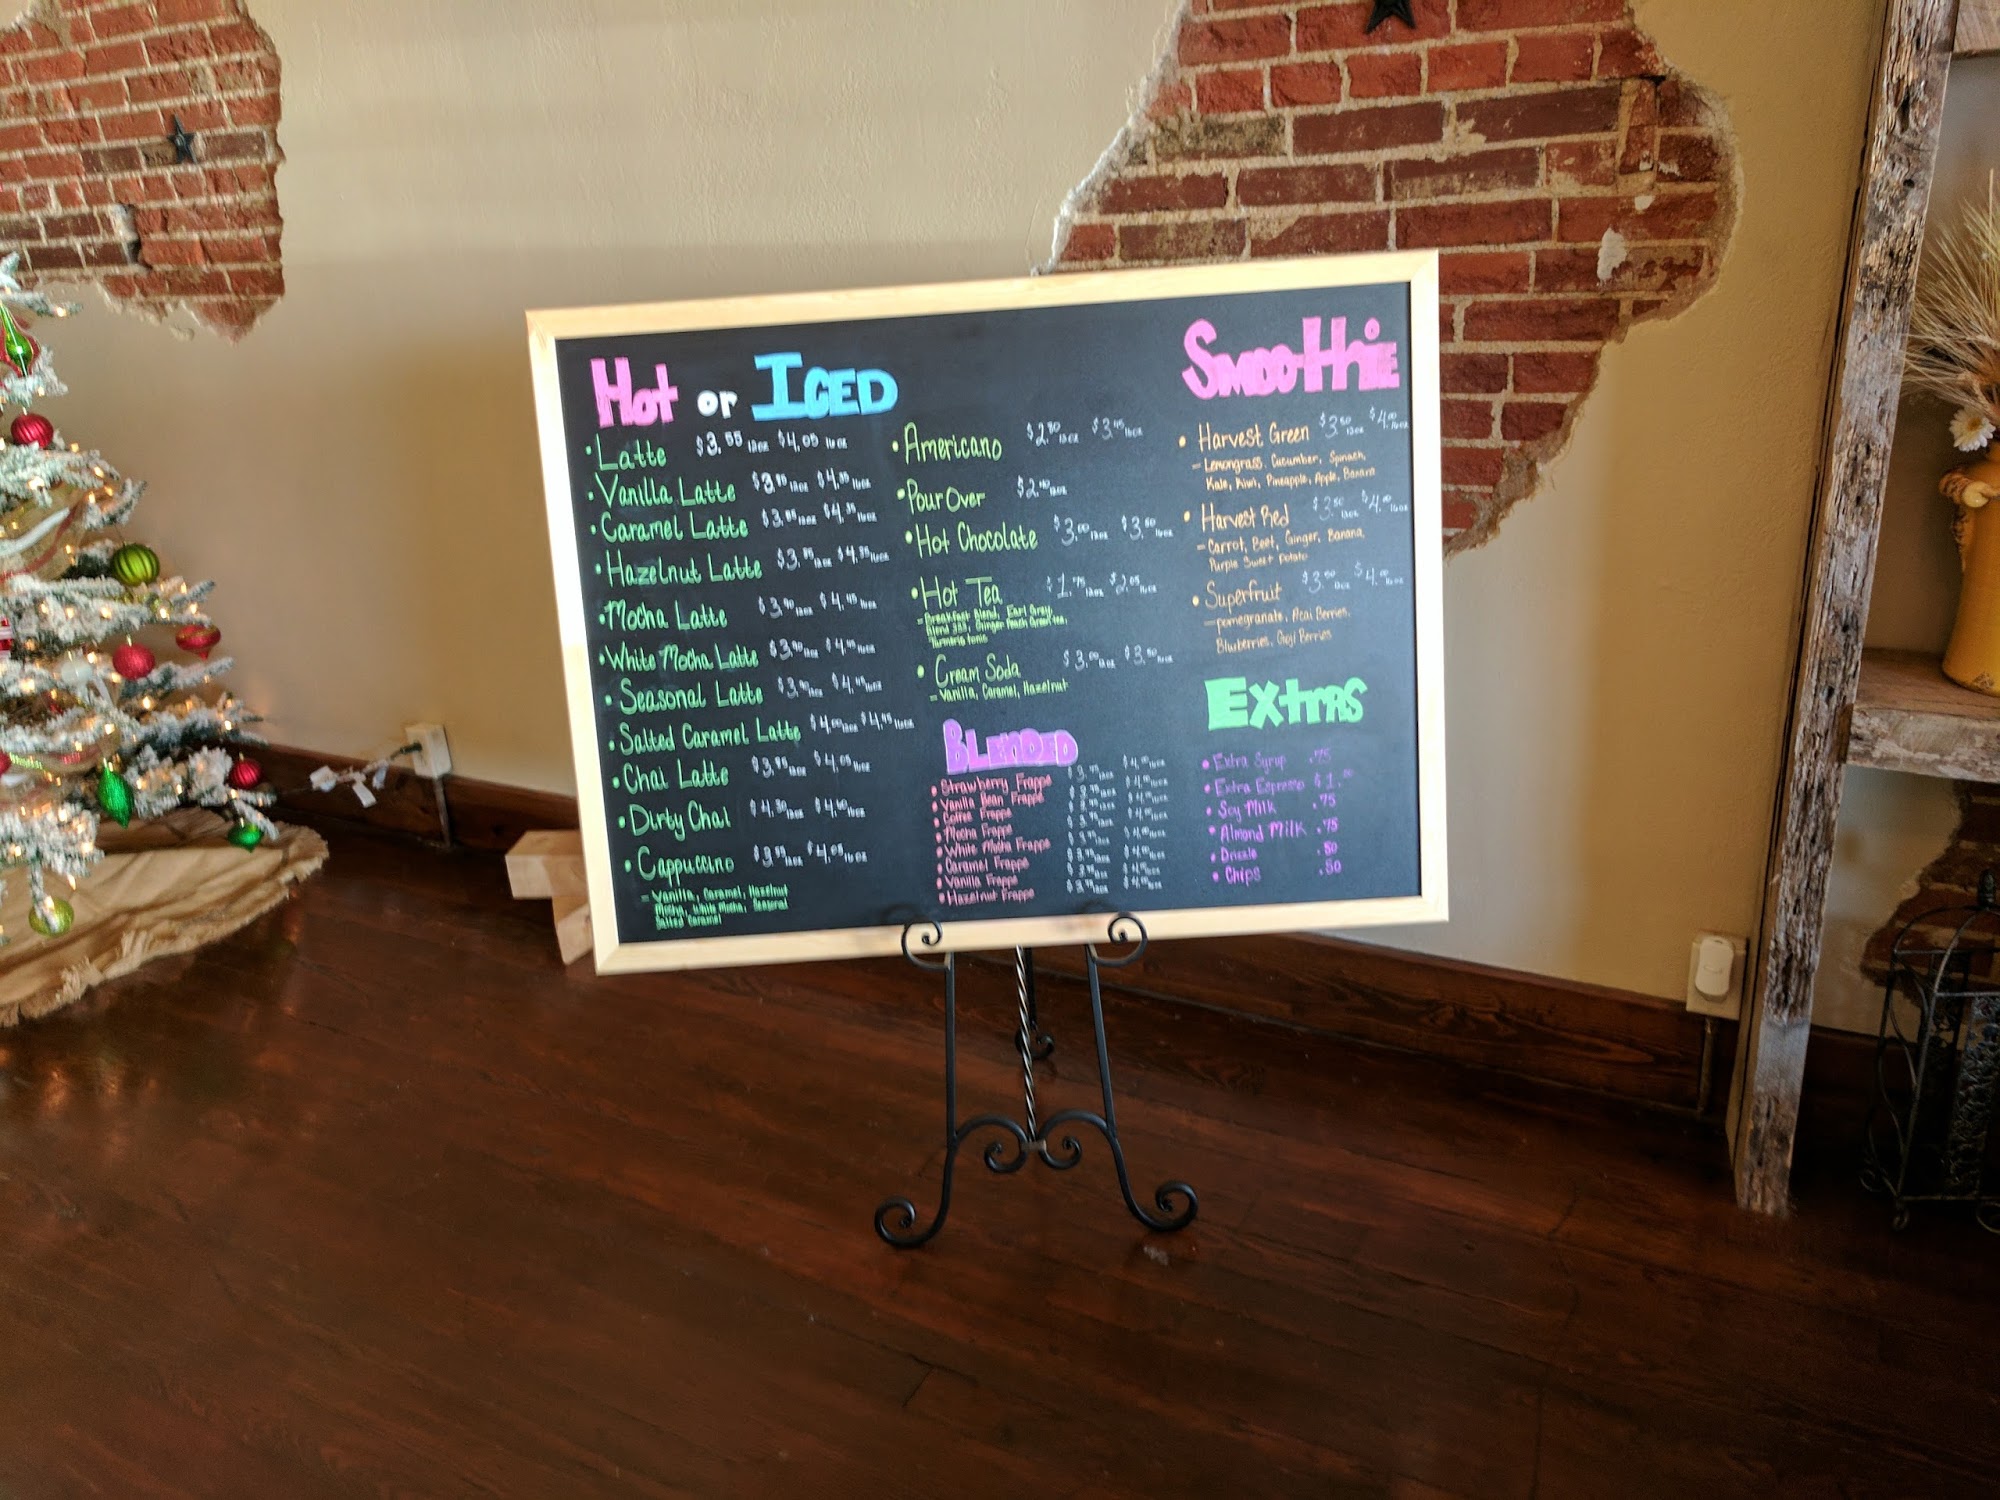 Hot or ICED
• Latte $3.55 12oz $4.05 16oz
• Vanilla Latte $3.85 12oz $4.35 16oz
• Caramel Latte $3.85 12oz $4.35 16oz
• Hazelnut Latte $3.85 12oz $4.35 16oz
• Mocha Latte $3.90 12oz $4.45 16oz
• White Mocha Latte $3.90 12oz $4.45 16oz
• Seasonal Latte $3.90 12oz $4.45 16oz
• Salted Caramel Latte $4.00 12oz $4.45 16oz
• Chai Latte $3.95 12oz $4.05 16oz
• Dirty Chai $4.30 12oz $4.60 16oz
• Cappuccino $3.55 12oz $4.05 16oz
- Vanilla, Caramel, Hazelnut
Mocha, White Mocha, Seasonal
Salted Caramel
• Americano $2.50 12oz $3.45 16oz
• Pour Over $2.40 12oz
• Hot Chocolate $3.00 12oz $3.50 16oz
• Hot Tea $1.75 12oz $2.05 16oz
- Breakfast Blend, Earl Grey,
Blend 333, Ginger Peach Green tea,
Turmeric tonic
• Cream Soda $3.00 12oz $3.50 16oz
- Vanilla, Caramel, Hazelnut
BLENDED
• Strawberry Frappe $3.75 12oz $4.00 16oz
• Vanilla Bean Frappe $4.00 16oz
• Coffee Frappe $4.00 16oz
• Mocha Frappe $4.00 16oz
• White Mocha Frappe $4.00 16oz
• Caramel Frappe $3.75 12oz $4.00 16oz
• Vanilla Frappe $3.75 12oz $4.00 16oz
• Hazelnut Frappe $3.75 12oz $4.00 16oz
Smoothie
• Harvest Green $3.50 12oz $4.00 16oz
- Lemongrass, Cucumber, Spinach,
Kale, Kiwi, Pineapple, Apple, Banana
• Harvest Red $3.50 12oz $4.00 16oz
- Carrot, Beet, Ginger, Banana,
Purple Sweet Potato
• Superfruit $3.50 12oz $4.00 16oz
- pomegranate, Acai Berries,
Blueberries, Goji Berries
Extras
• Extra Syrup .75
• Extra Espresso $1.00
• Soy Milk .75
• Almond Milk .75
• Drizzle .50
• Chips .50